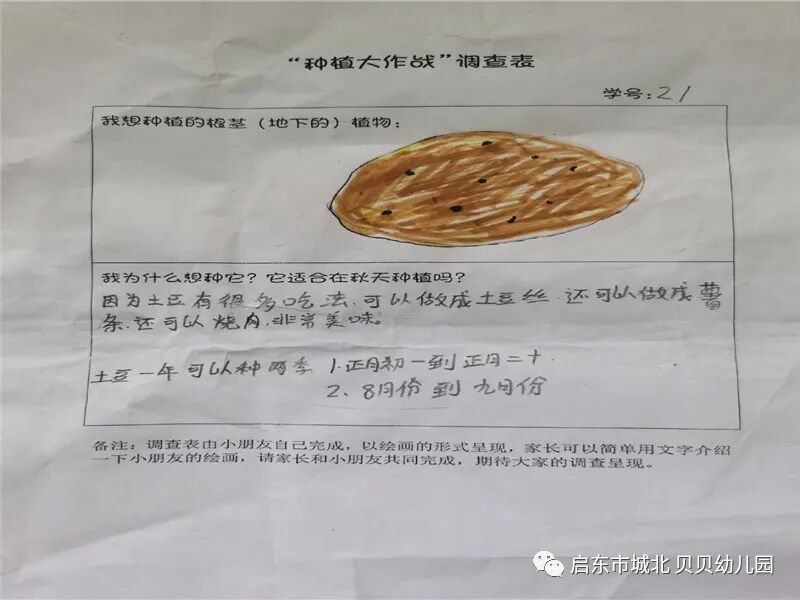 “种植大作战”调查表
学号:21
我想种植的根茎（地下的）植物：
我为什么想种它？它适合在秋天种植吗？
因为土豆有很多吃法.可以做成土豆丝.还可以做成薯
条.还可以烧肉.非常美味。
土豆一年可以种两季 1.正月初一到正月二十.
2、8月份到九月份
备注：调查表由小朋友自己完成，以绘画的形式呈现，家长可以简单用文字介绍
一下小朋友的绘画，请家长和小朋友共同完成，期待大家的调查呈现。
启东市城北 贝贝幼儿园